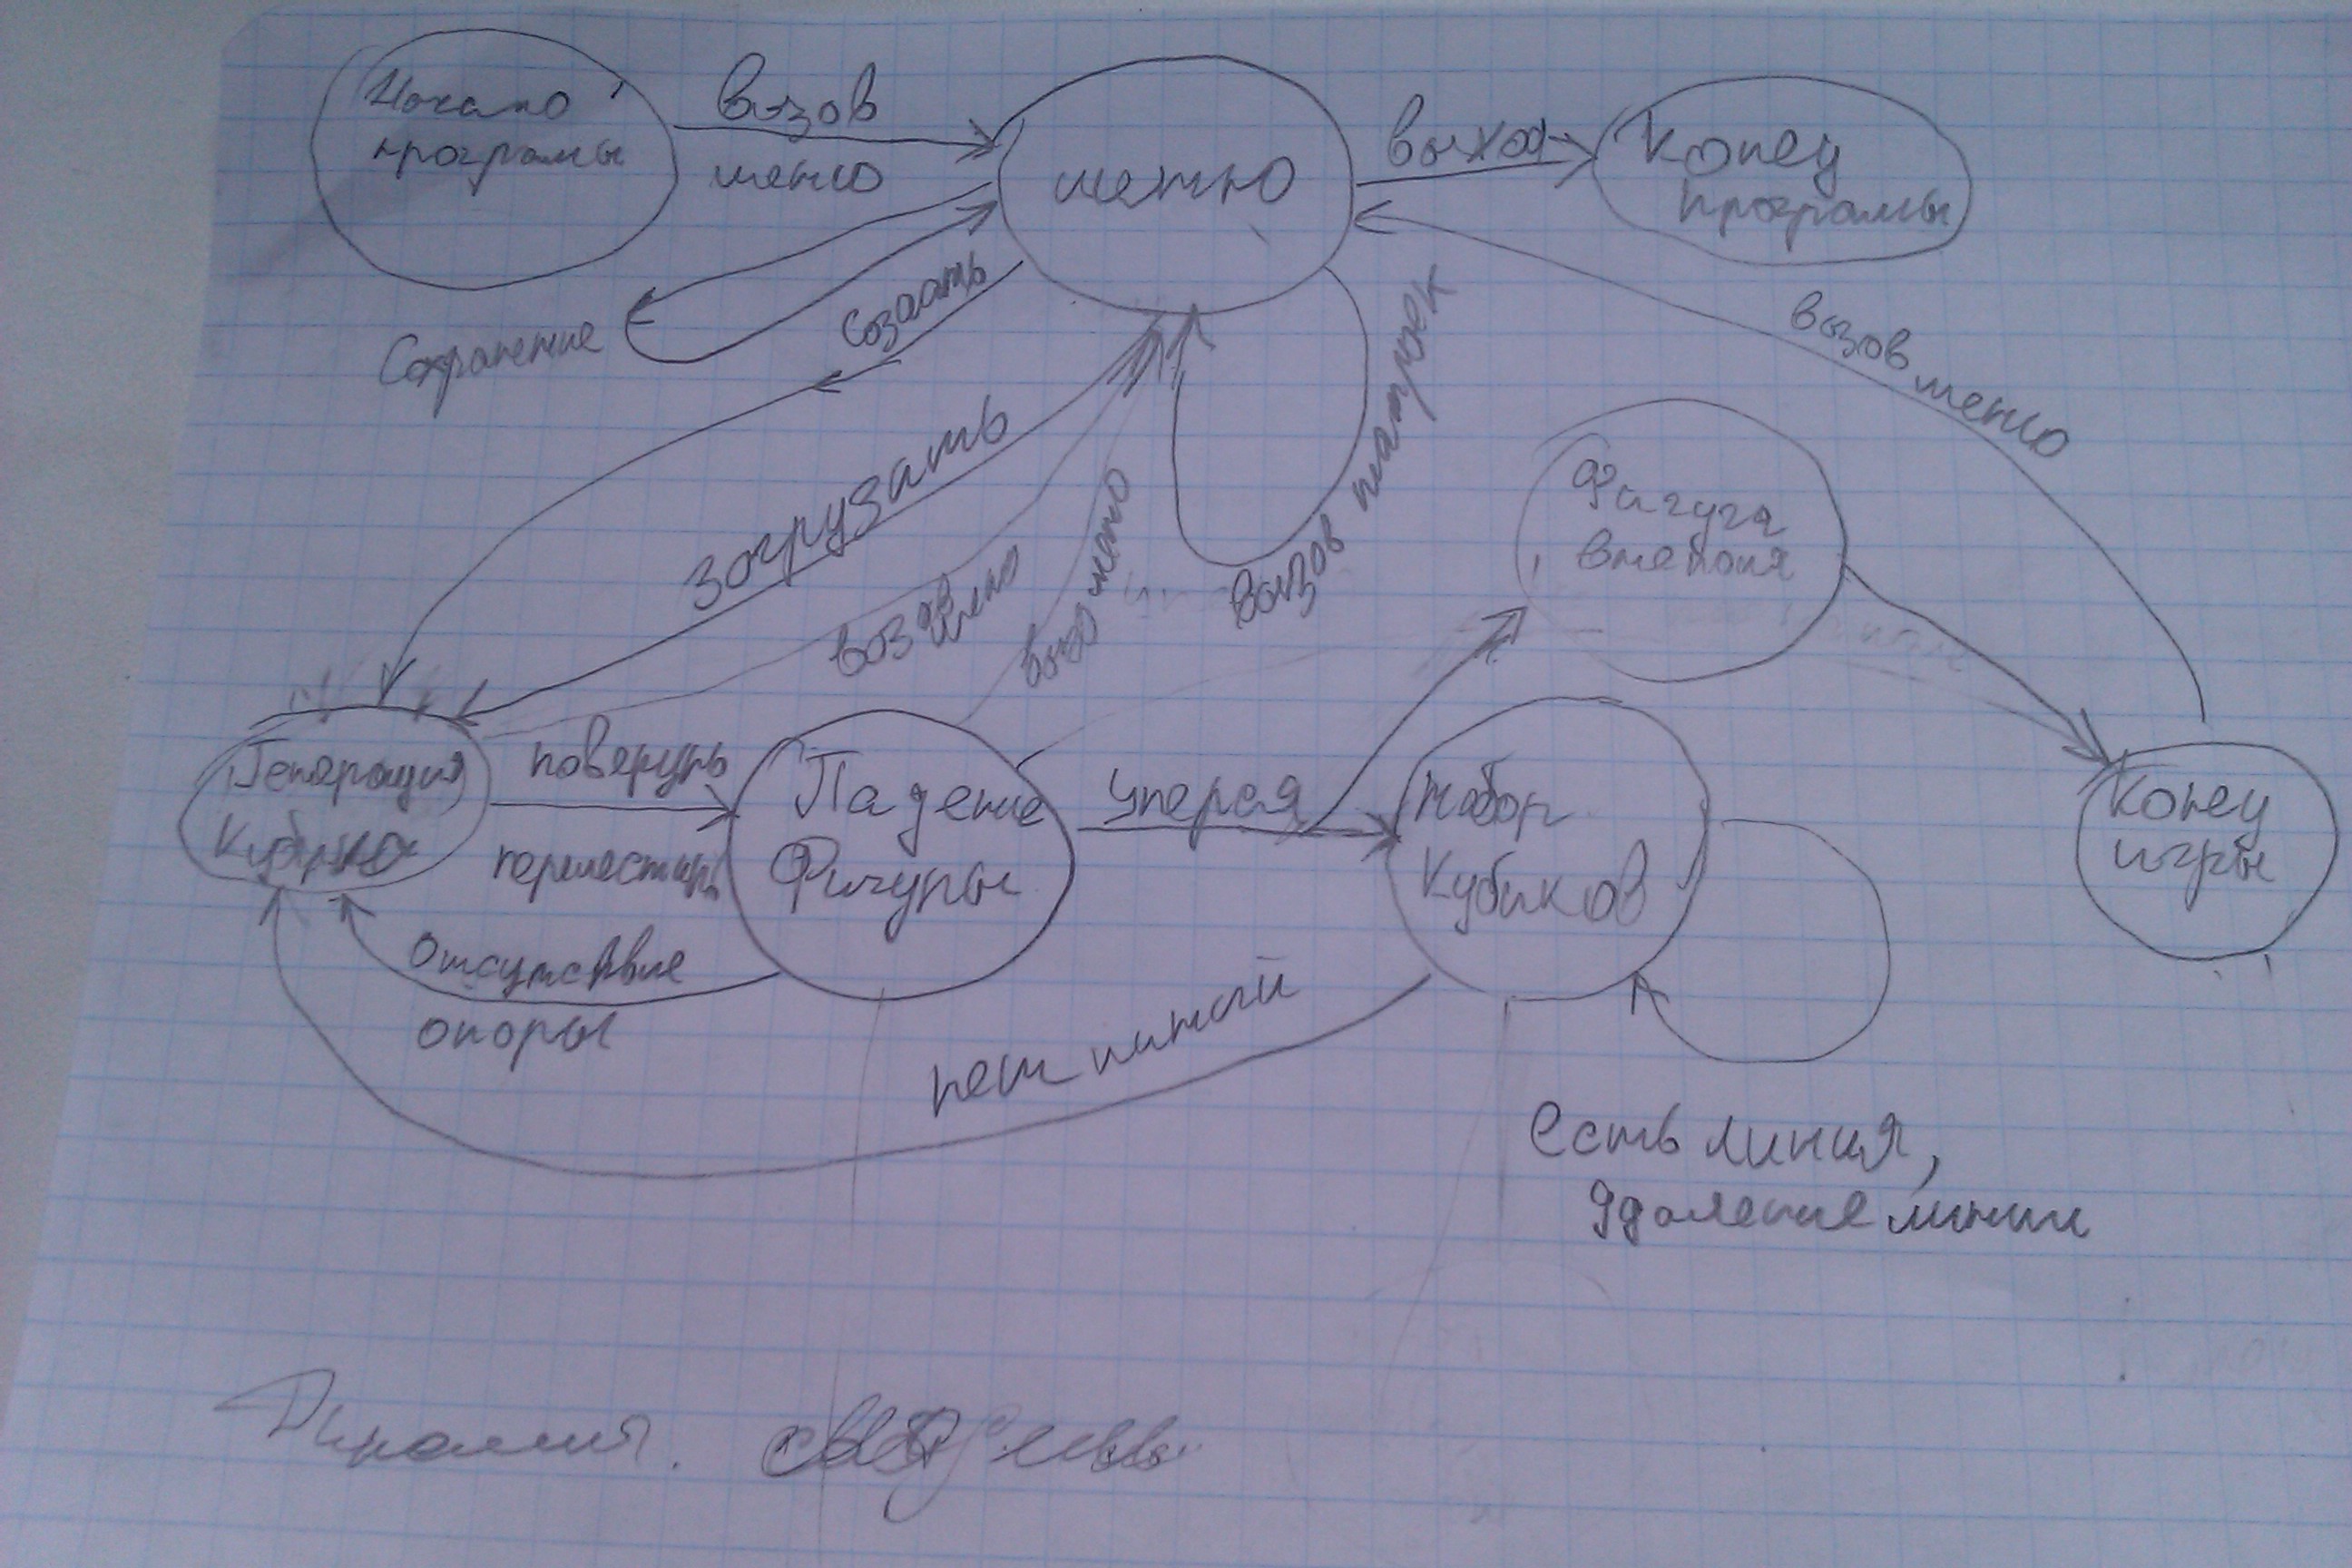 Начало
программы
вызов
меню
меню
выход
Конец
программы
Сохранение
Создать
Загрузать
вызов меню
вызов меню
вызов настроек
вызов меню
Фигура
вне поля
Генерация
Кубика
повернуть
переместить
Падение
Фигуры
уперся
Набор
Кубиков
Конец
игры
Отсутствие
опоры
нет линий
есть линия,
удаление линии